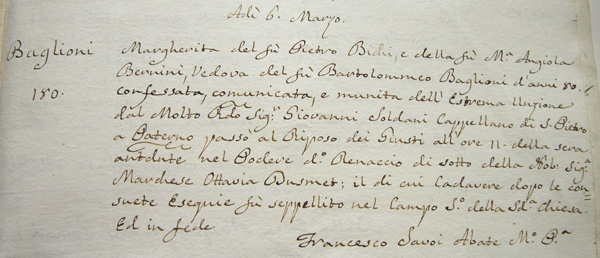 Adì 6. Marzo.
Baglioni
180.
Margherita del fù Pietro Bichi, e della fù Mª Angiola
Bernini, Vedova del fù Bartolommeo Baglioni d'anni 80.
confessata, comunicata, e munita dell'Estrema Unzione
dal Molto Rdo Sigʳ Giovanni Soldani Cappellano di S. Pietro
a Paterno passò al Riposo dei Giusti all'ore 11. della sera
antdnte nel Podere dº Renaccio di sotto della Nob: Sigª
Marchese Ottavia Dusmet; il di cui Cadavere dopo le con=
suete Esequie fù seppellito nel Campo Sº della Sdª Chiesa.
Ed in fede
Francesco Savoi Abate Mº Pª